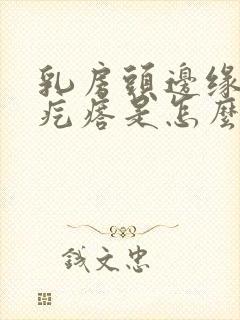 乳房頭邊缘
疙瘩是怎麼
錢文忠